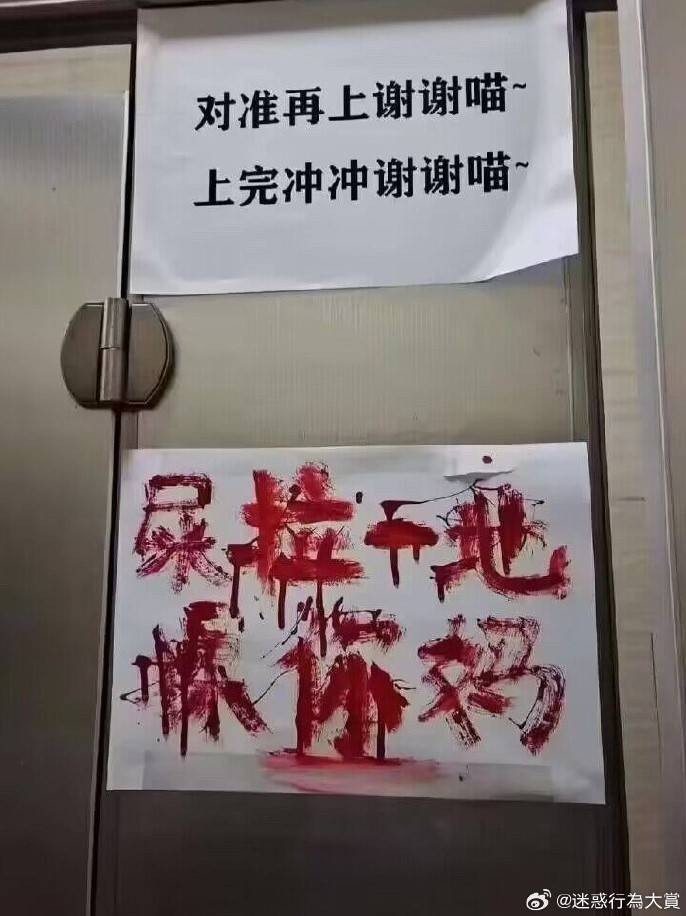 对准再上谢谢喵~
上完冲冲谢谢喵~
拉地
你妈
@迷惑行為大賞